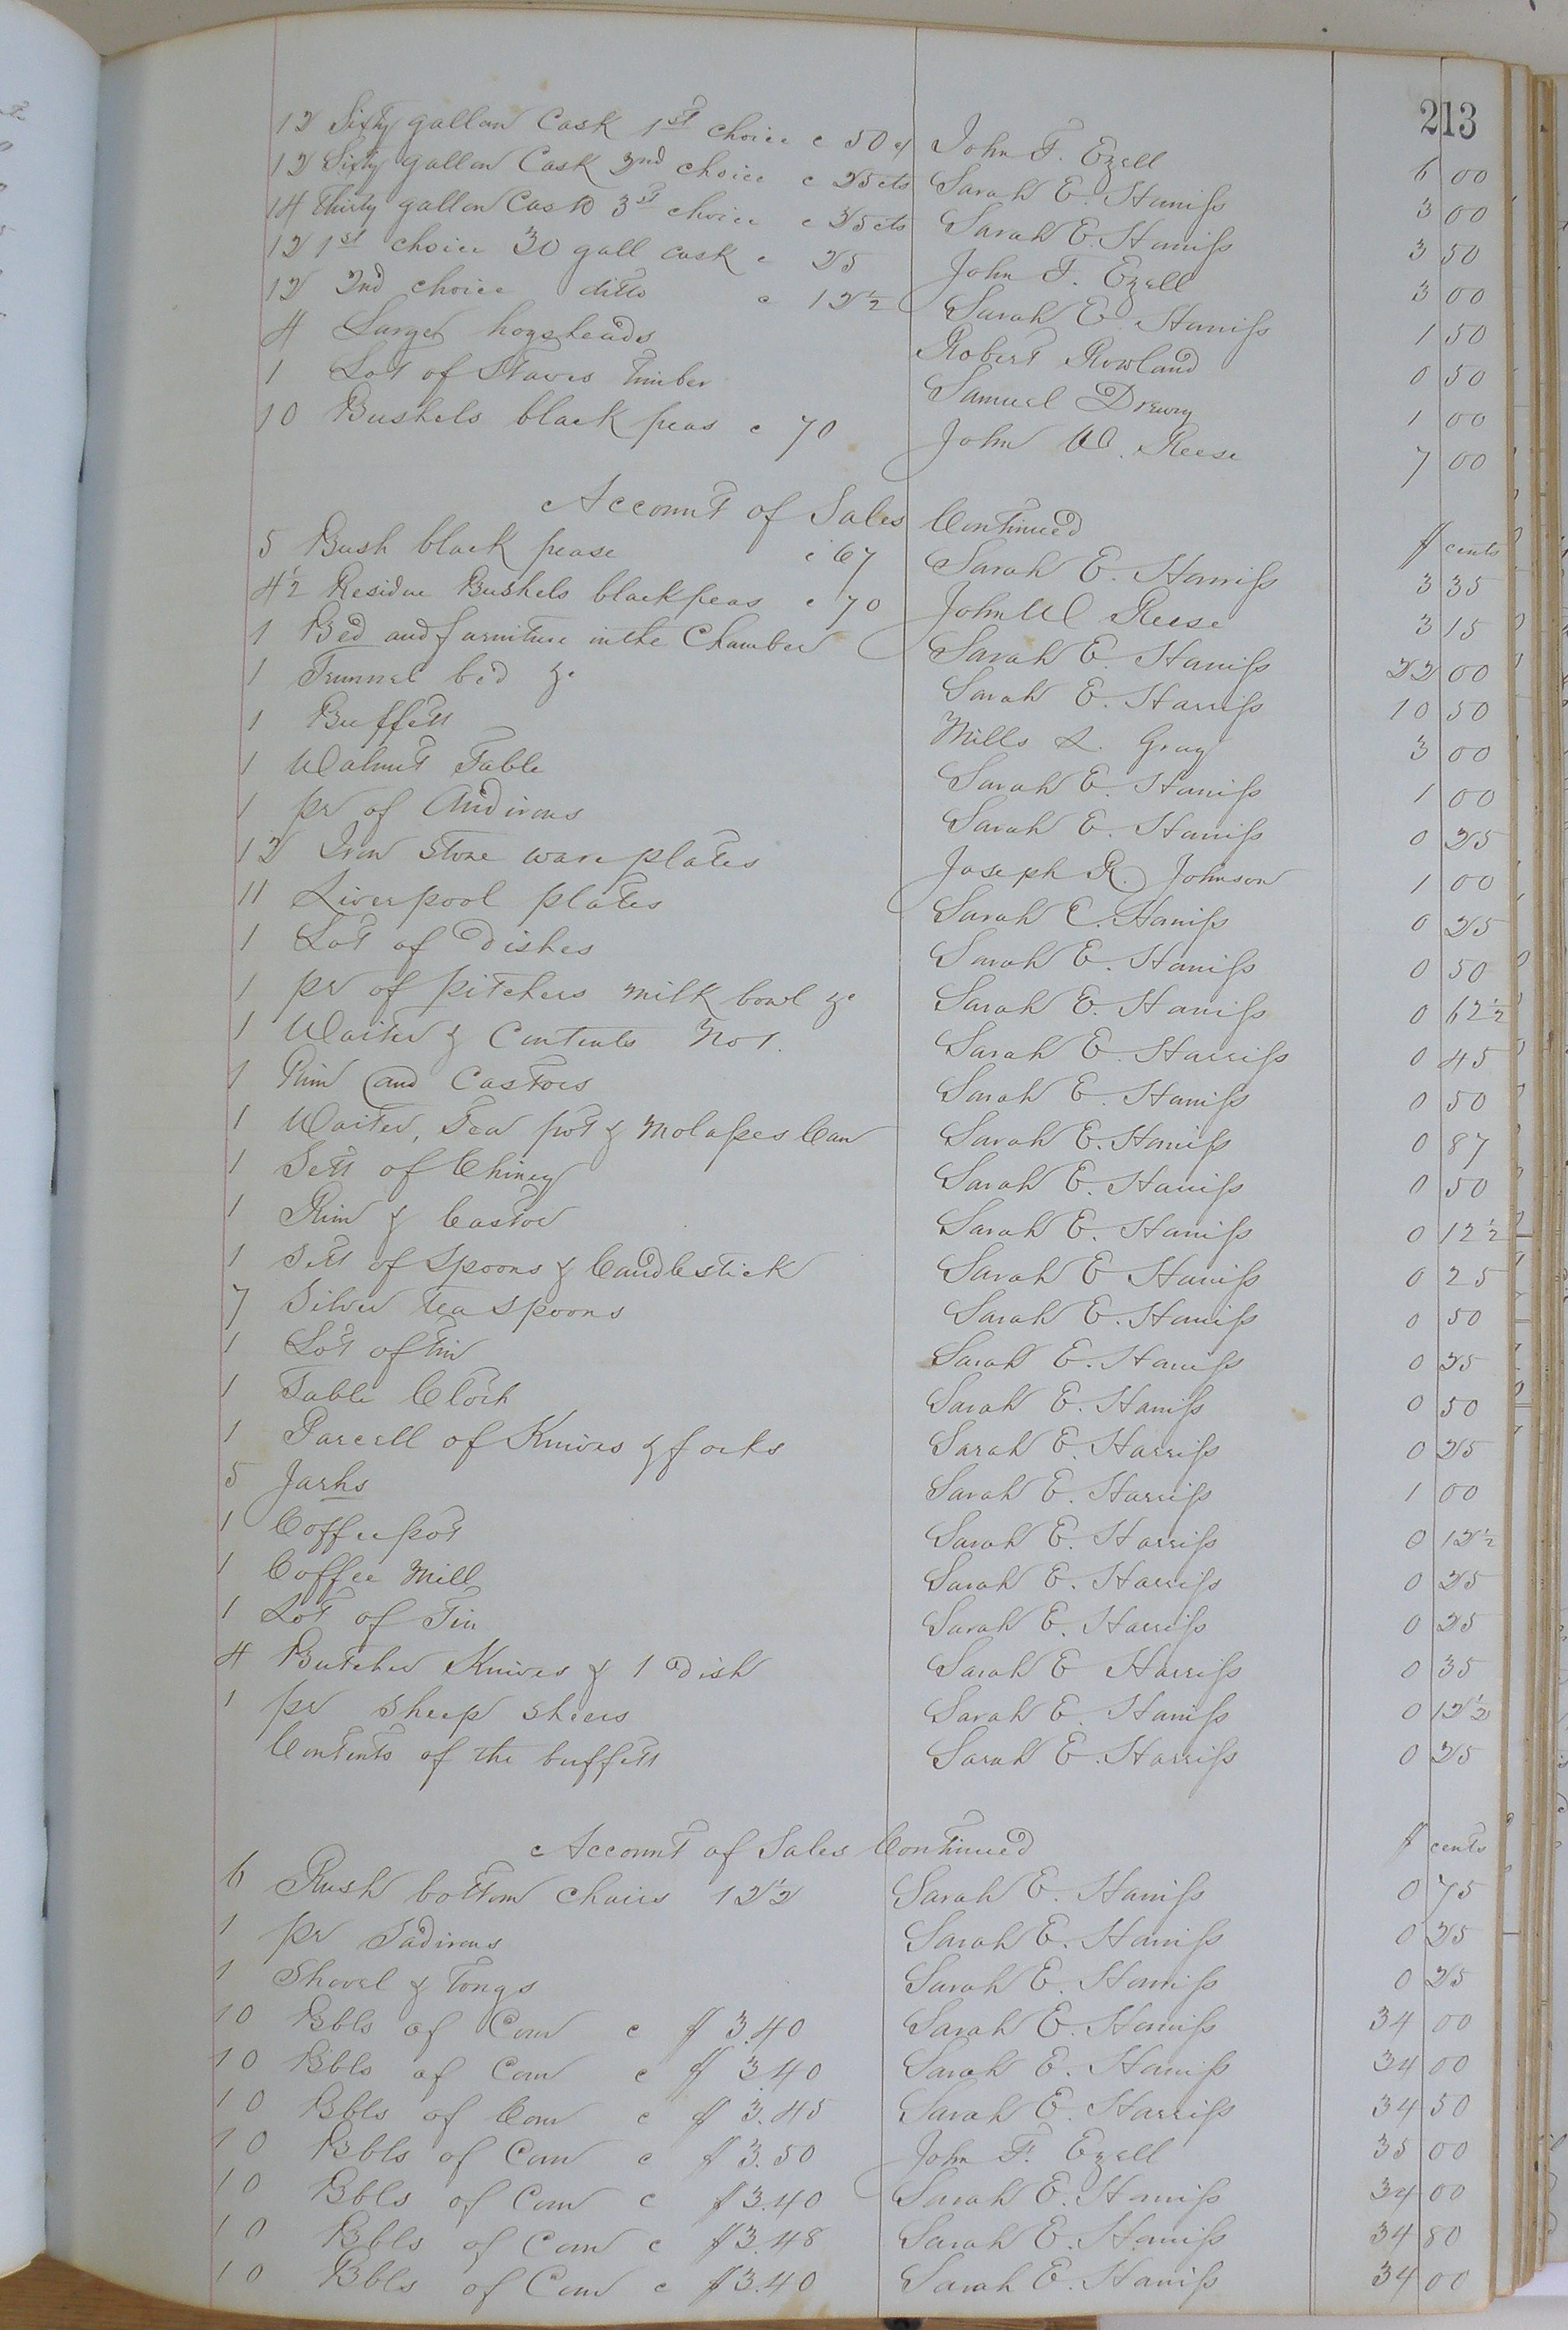 213
12 Sixty gallon Cask 1st choice c 50 c John F. Ezell 6 00
12 Sixty gallon Cask 2nd choice c 25 cts Sarah E. Harriss 3 00
14 Thirty gallon Cask 3st choice c 25 cts Sarah E. Harriss 3 50
12 1st choice 30 gall cask c 25 John F. Ezell 3 00
12 2nd choice ditto c 12½ Sarah E. Harriss 1 50
4 Larger hogsheads Robert Rowland 0 50
1 Lot of Staves Timber Samuel Drewry 1 00
10 Bushels black peas c 70 John W. Reese 7 00
Account of Sales Continued $ cents
5 Bush black pease c 67 Sarah E. Harriss 3 35
4½ Residue Bushels black peas c 70 John W Reese 3 15
1 Bed and furniture in the Chamber Sarah E. Harriss 22 00
1 Trunnel bed &c Sarah E. Harriss 10 50
1 Buffett Mills L. Gray 3 00
1 Walnut Table Sarah E. Harriss 1 00
1 pr of Andirons Sarah E. Harriss 0 25
12 Iron Stone ware plates Joseph R. Johnson 1 00
11 Liverpool plates Sarah E. Harriss 0 25
1 Lot of Dishes Sarah E. Harriss 0 50
1 pr of pitchers milk bowl &c Sarah E. Harriss 0 62½
1 Waiter & Contents No 1. Sarah E. Harriss 0 45
1 Rim and Castors Sarah E. Harriss 0 50
1 Waiter, Tea pot & Molasses Can Sarah E. Harriss 0 87
1 Sett of Chiney Sarah E. Harriss 0 50
1 Rim & Castor Sarah E. Harriss 0 12½
1 Sett of Spoons & Candlestick Sarah E Harriss 0 25
7 Silver tea spoons Sarah E. Harriss 0 50
1 Lot of tin Sarah E. Harriss 0 25
1 Table Cloth Sarah E. Harriss 0 50
1 Parcell of Knives & forks Sarah E. Harriss 0 25
5 Jarhs Sarah E. Harriss 1 00
1 Coffee pot Sarah E. Harriss 0 12½
1 Coffee Mill Sarah E. Harriss 0 25
1 Lot of Tin Sarah E. Harriss 0 25
4 Butcher Knives & 1 dish Sarah E Harriss 0 35
1 pr Sheep Sheers Sarah E. Harriss 0 12½
Contents of the buffett Sarah E. Harriss 0 25
Account of Sales Continued $ cents
6 Rush bottom chairs 12½ Sarah E. Harriss 0 75
1 pr Sadirons Sarah E. Harriss 0 25
1 Shovel & Tongs Sarah E. Harriss 0 25
10 Bbls of Corn c $3.40 Sarah E. Harriss 34 00
10 Bbls of Corn c $3.40 Sarah E. Harriss 34 00
10 Bbls of Corn c $3.45 Sarah E. Harriss 34 50
10 Bbls of Corn c $3.50 John F. Ezell 35 00
10 Bbls of Corn c $3.40 Sarah E. Harriss 34 00
10 Bbls of Corn c $3.48 Sarah E. Harriss 34 80
10 Bbls of Corn c $3.40 Sarah E. Harriss 34 00